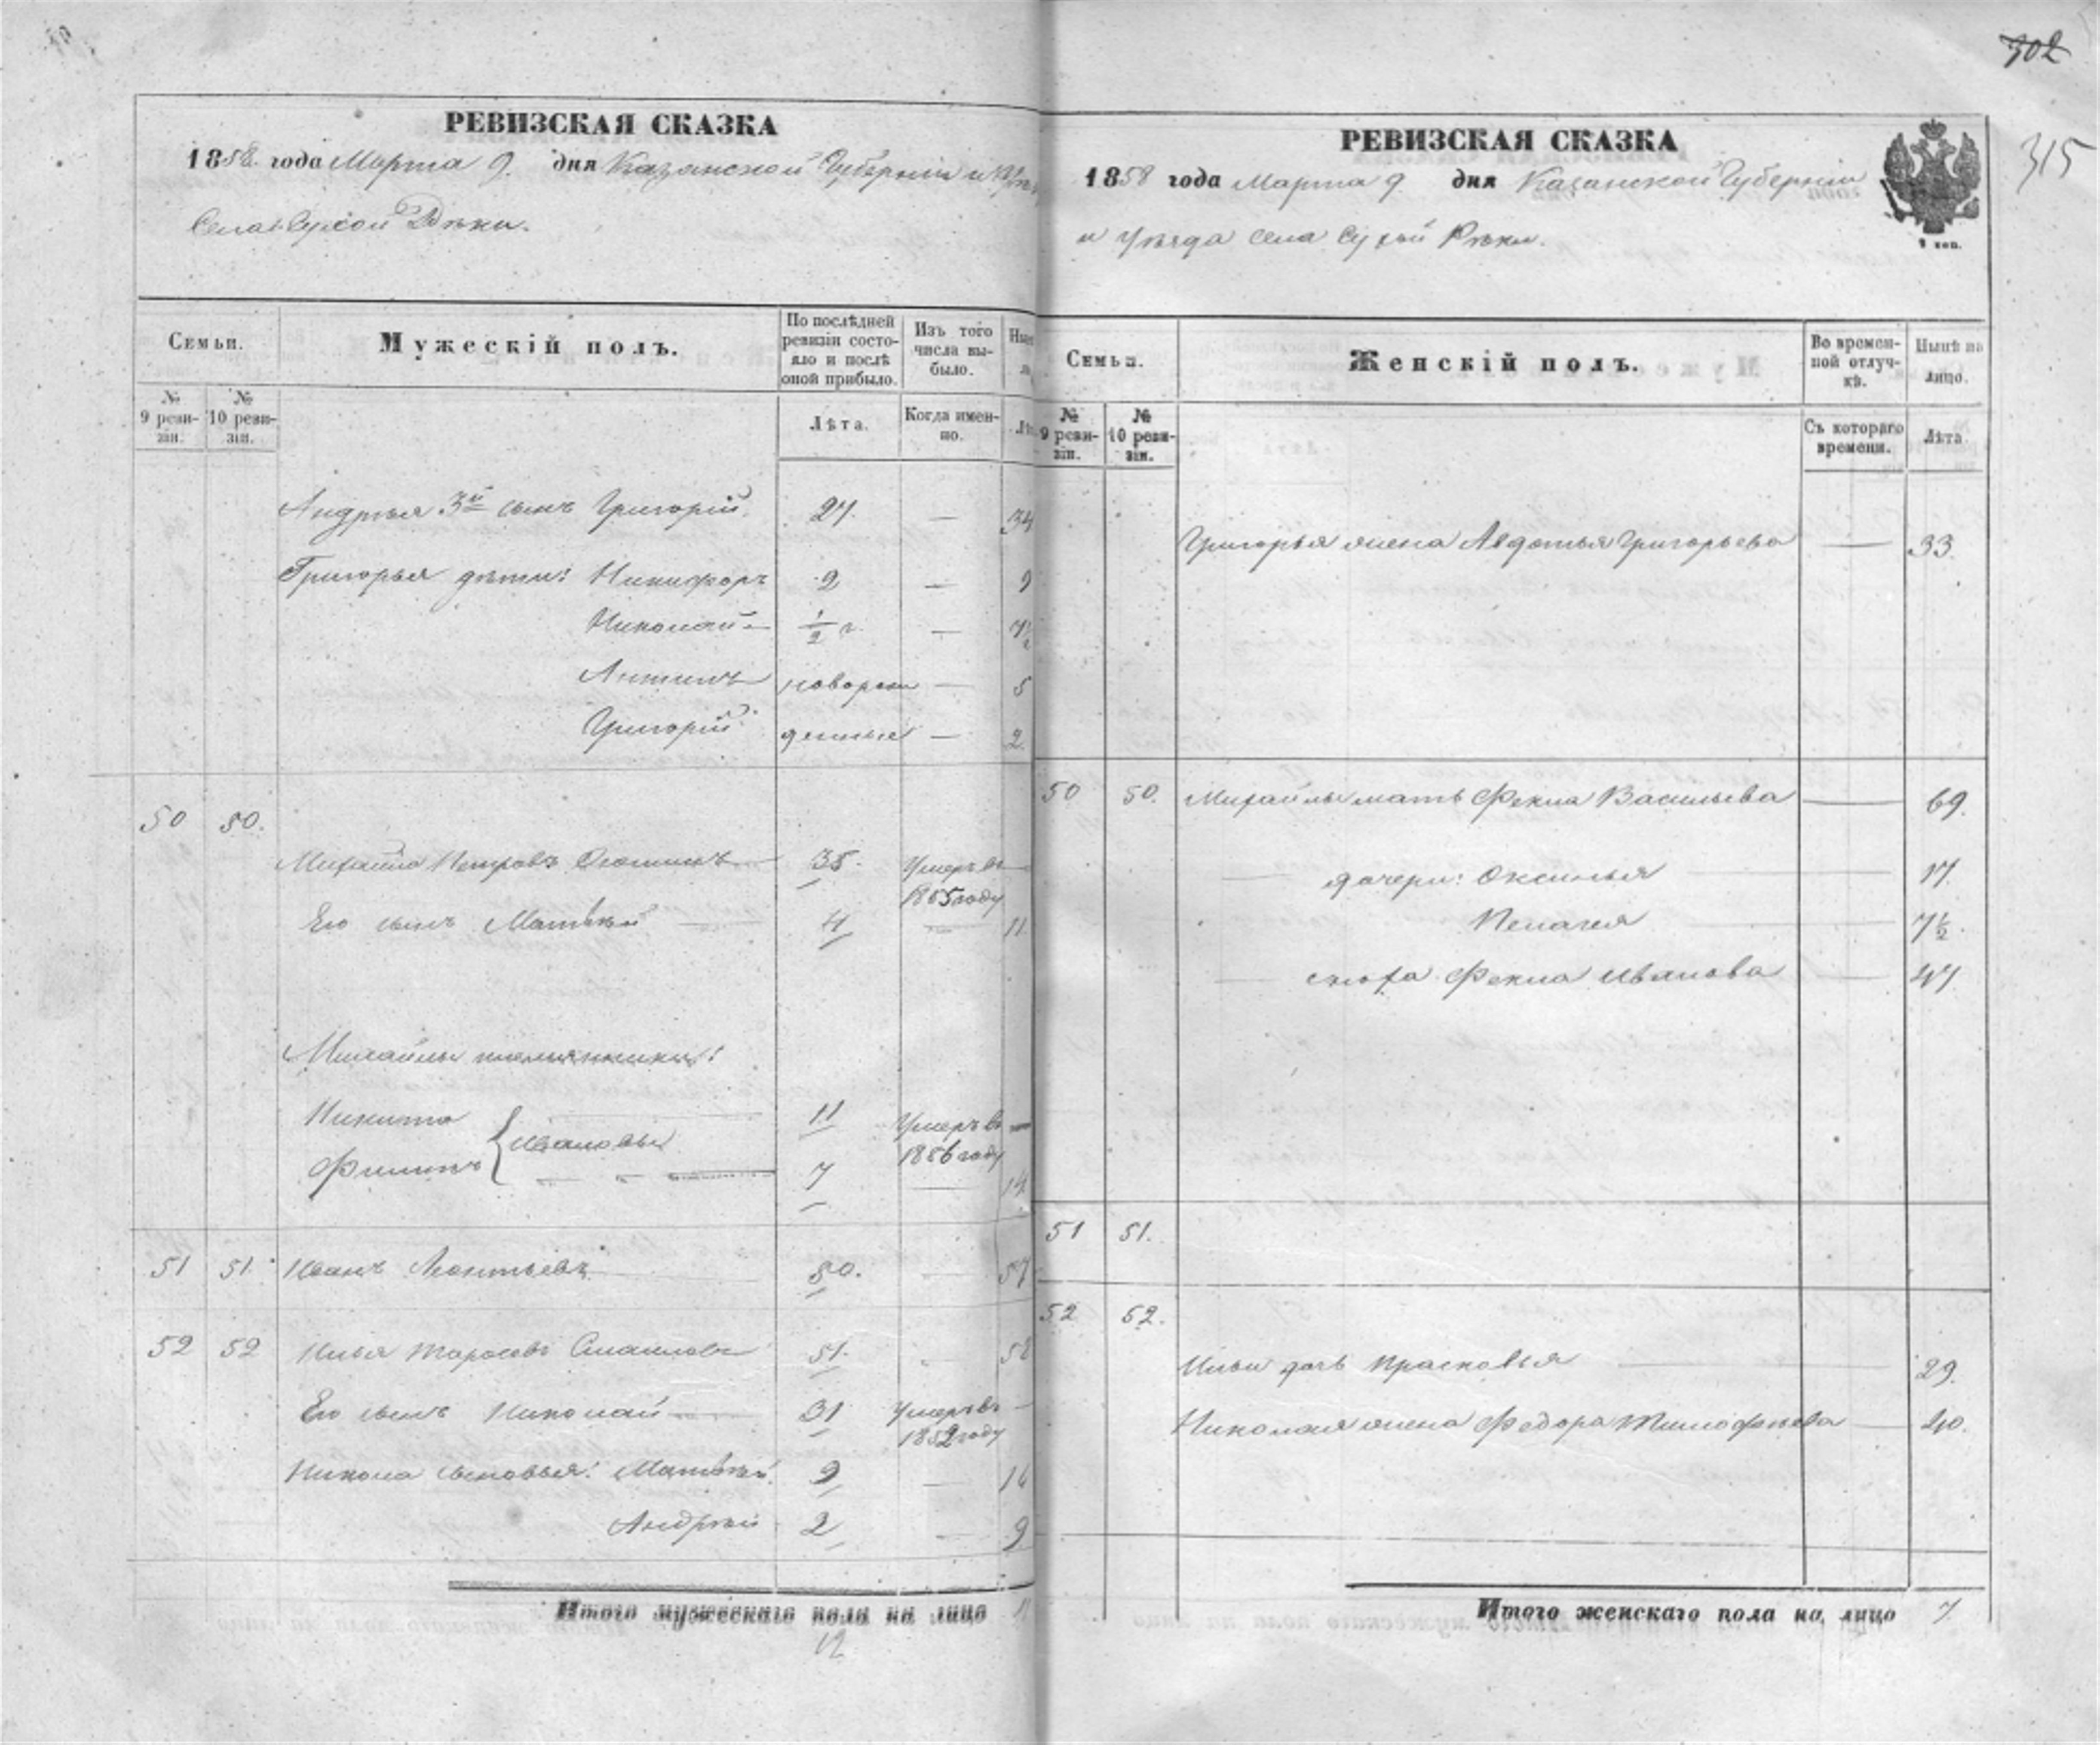 302
315
РЕВИЗСКАЯ СКАЗКА
1858 года Марта 9. дня Казанской Губерніи и
Села Сухой Рѣки.
Семьи.
Мужескій полъ.
По послѣдней ревизіи состояло и послѣ оной прибыло.
Изъ того числа выбыло.
№ 9 ревизіи.
№ 10 ревизіи.
Лѣта.
Когда именно.
Андрѣя 3й сынъ Григорій. 27. — 34
Григорья дѣти: Никифоръ 2 — 9
Николай — 1/2 г. — 7 1/2
Антипъ новорож — 5
Григорій денные — 2.
50 50.
Михайла Петровъ 35. Умеръ въ
1855 году
Его сынъ Матвѣй 4 — 11
Михайлы племянники:
Никита 11 Умеръ въ —
Ивановы 1856 году
Филипъ 7 — 14
51 51. Иванъ Леонтьевъ 50. — 57
52 52 Илья Тарасовъ 51. 58
Его сынъ Николай 31 Умеръ въ —
1852 году
Никола сыновья: Матвѣй. 9 — 16
Андрѣй 2 — 9
Итого мужескаго пола на лицо 11
12
РЕВИЗСКАЯ СКАЗКА
1858 года Марта 9 дня Казанской Губерніи
и Уѣзда села Сухой Рѣки.
Семьи.
Женскій полъ.
Во временной отлучкѣ.
Нынѣ на лицо.
№ 9 ревизіи.
№ 10 ревизіи.
Съ котораго времени.
Лѣта.
Григорья жена Авдотья Григорьева — 33.
50 50. Михайлы мать Фекла Васильева — 69.
дочери: Оксинья — 17.
Пелагея — 7 1/2.
сноха Фекла Иванова — 47
51 51.
52 52.
Ильи дочь Прасковья — 29.
Николая жена Федора Тимофѣева — 40.
Итого женскаго пола на лицо 7.